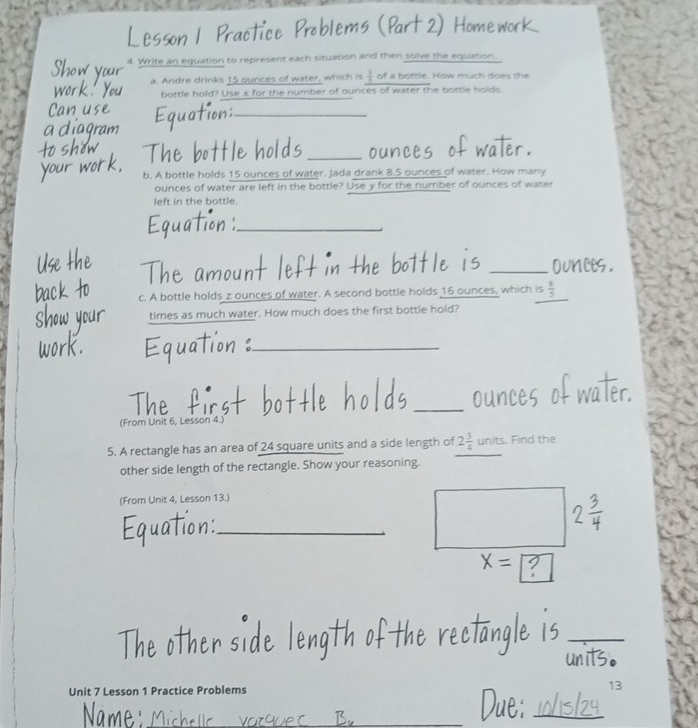 Lesson 1 Practice Problems (Part 2) Homework
Show your
work! You
can use
a diagram
to show
your work.
4. Write an equation to represent each situation and then solve the equation.
a. Andre drinks 15 ounces of water, which is of a bottle. How much does the
bottle hold? Use x for the number of ounces of water the bottle holds.
Equation:
The bottle holds ounces of water.
b. A bottle holds 15 ounces of water. Jada drank 8.5 ounces of water. How many
ounces of water are left in the bottle? Use y for the number of ounces of water
left in the bottle.
Equation:
Use the
back to
show your
work.
The amount left in the bottle is ounces.
c. A bottle holds z ounces of water. A second bottle holds 16 ounces, which is
times as much water. How much does the first bottle hold?
Equation:
The first bottle holds ounces of water.
(From Unit 6, Lesson 4.)
5. A rectangle has an area of 24 square units and a side length of 2 3/4 units. Find the
other side length of the rectangle. Show your reasoning.
(From Unit 4, Lesson 13.)
2 3/4
Equation:
x = ?
The other side length of the rectangle is
units.
Unit 7 Lesson 1 Practice Problems
13
Name: Michelle
Due: 10/15/24